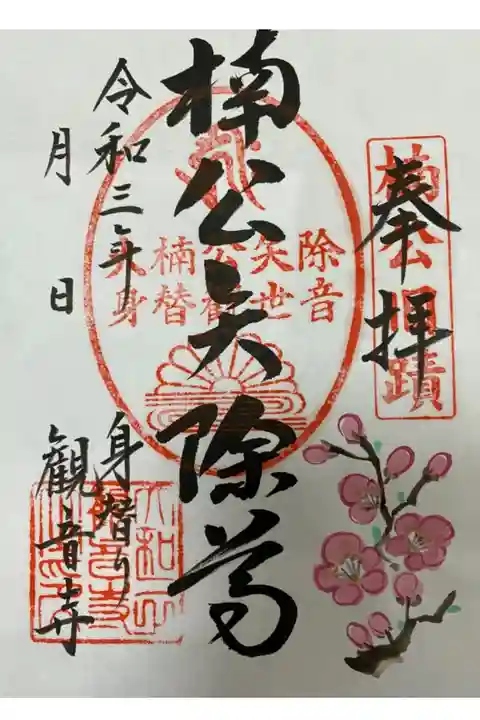 奉拝
楠公
蹟
楠公矢除尊
除音
矢世
公観
楠替
大身
令和三年
月 日
身替り
観音寺